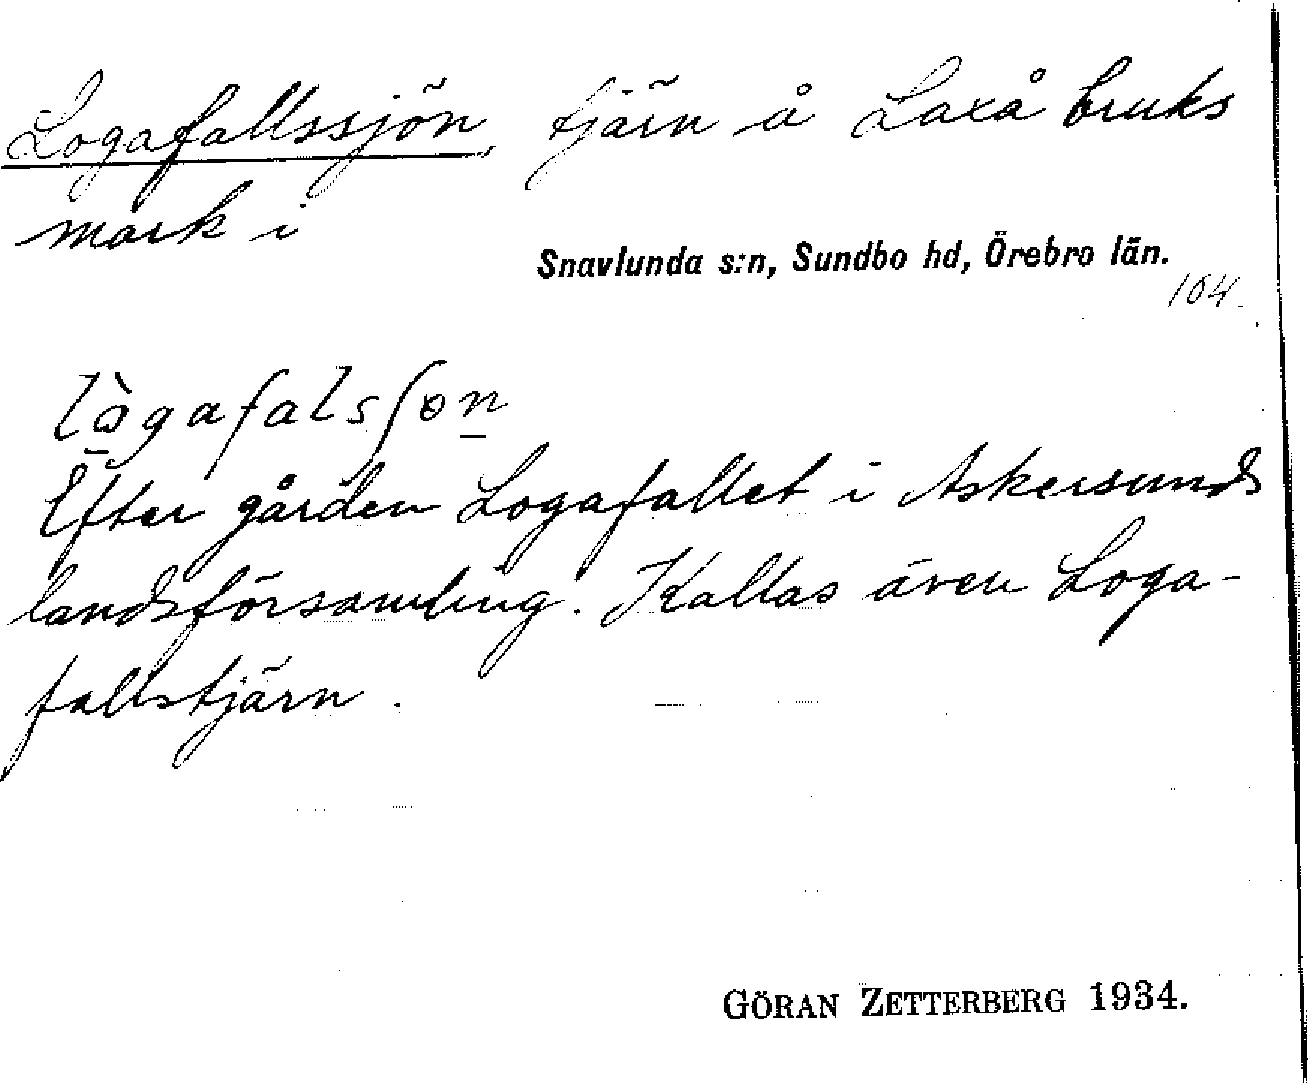 Logafallssjön, tjärn å Laxå bruks
mark i
Snavlunda s:n, Sundbo hd, Örebro län.
104.
lògafalsʃɵn̲
Efter gården Logafallet i Askersunds
landsförsamling. Kallas även Loga-
fallstjärn.
GÖRAN ZETTERBERG 1934.